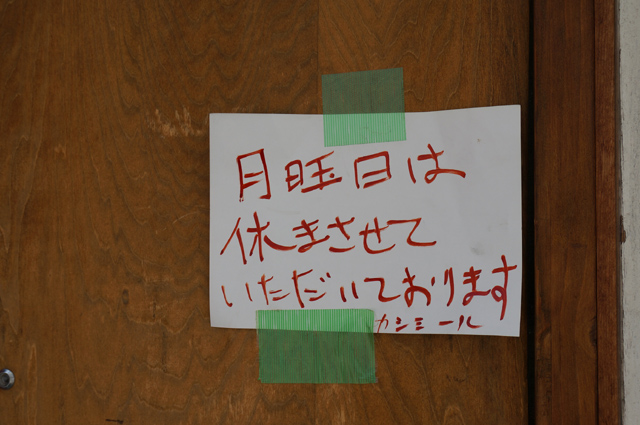 月旺日は
休まさせて
いただいております
カシミール